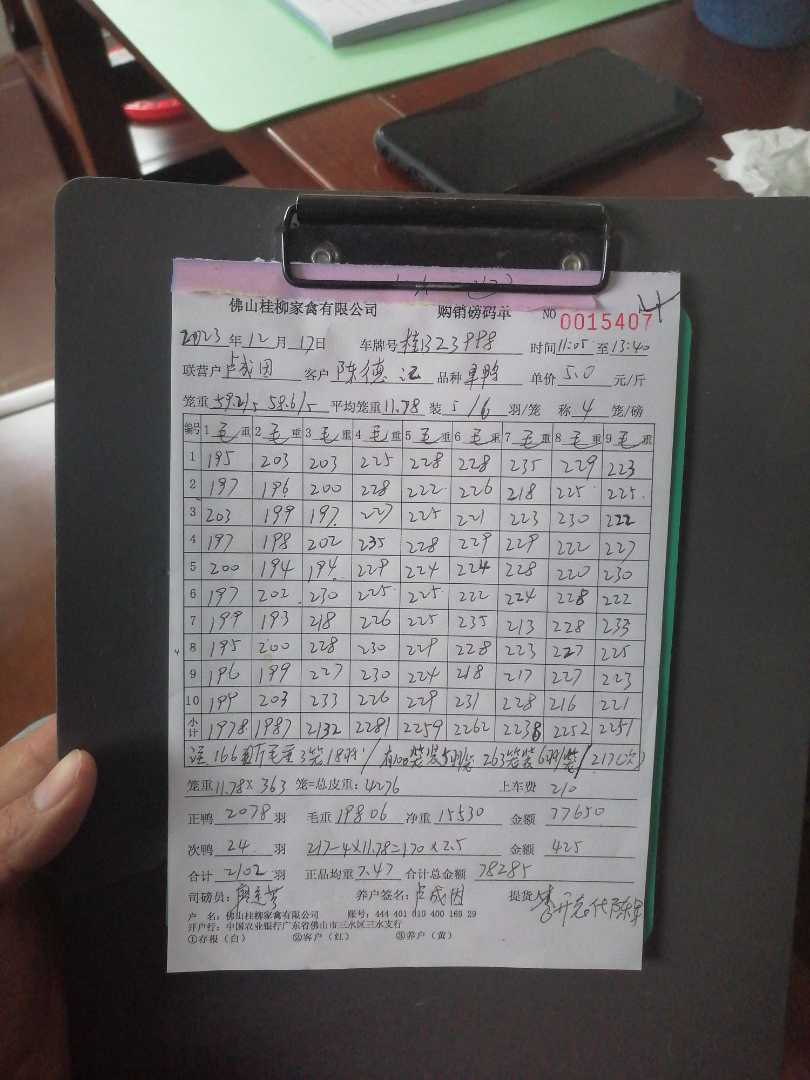 佛山桂柳家禽有限公司 购销磅码单 NO 0015407
2023 年 12 月 17 日 车牌号 桂B23998 时间 11:05 至 13:40
联营户 卢成因 客户 陈德江 品种 单价 5.0 元/斤
笼重 59.2/5 58.6/5 平均笼重 11.78 装 5/6 羽/笼 称 4 笼/磅
编号 1 毛重 2 毛重 3 毛重 4 毛重 5 毛重 6 毛重 7 毛重 8 毛重 9 毛重
1 195 203 203 225 228 228 235 229 223
2 197 196 200 228 222 226 218 225 225
3 203 199 197 227 225 221 223 230 222
4 197 198 202 235 228 229 229 222 227
5 200 194 194 229 224 224 228 220 230
6 197 202 230 225 225 222 224 228 222
7 199 193 218 226 225 235 213 228 233
8 195 200 228 230 229 228 223 227 225
9 196 199 227 230 224 218 217 227 223
10 199 203 233 226 229 231 228 216 221
小计 1978 1987 2132 2281 2259 2262 2238 2252 2251
注 166斤毛重3笼18羽/有100笼装5羽/笼 263笼装6羽/笼/217(次)
笼重 11.78 X 363 笼=总皮重: 4276 上车费 210
正鸭 2078 羽 毛重 19806 净重 15530 金额 77650
次鸭 24 羽 217-4×11.78=170×2.5 金额 425
合计 2102 羽 正品均重 7.47 合计总金额 78285
司磅员: 养户签名: 卢成因 提货人:
户 名: 佛山桂柳家禽有限公司 账号: 444 401 010 400 169 29
开户行: 中国农业银行广东省佛山市三水区三水支行
①存根（白） ②客户（红） ③养户（黄）